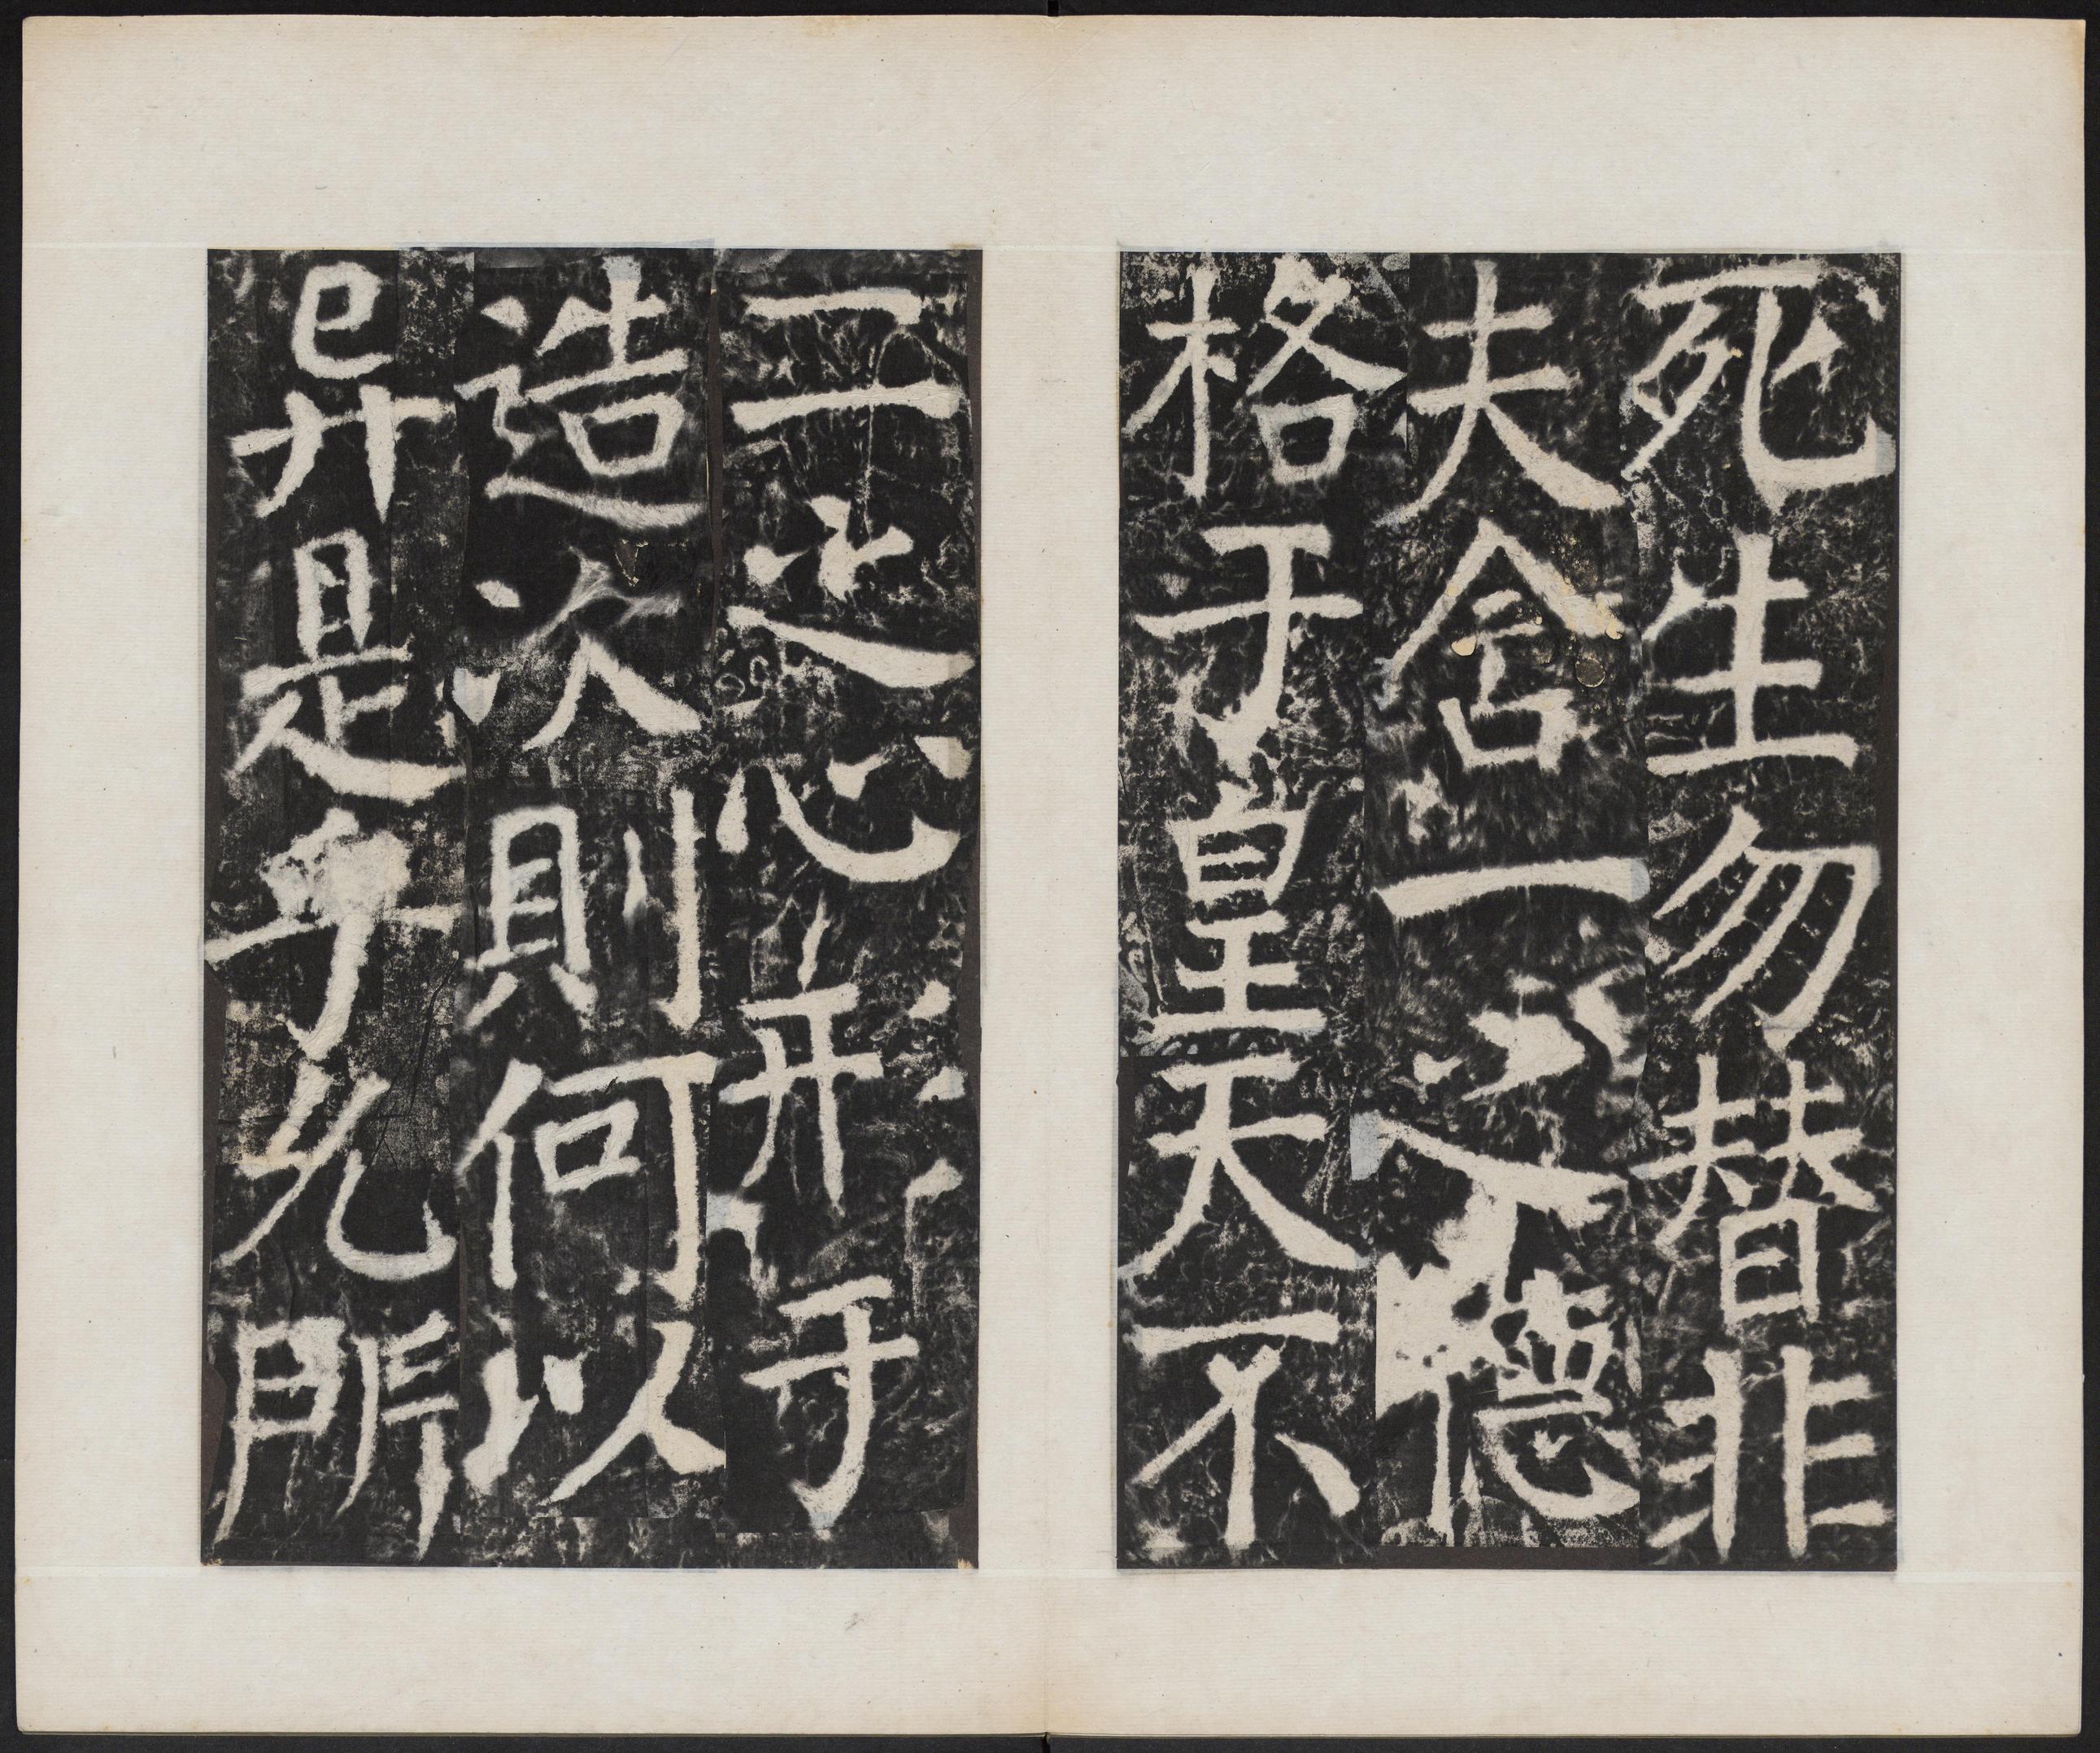 死生勿替非
夫含一之德
格于皇天不
二之心形于
造次則何以
异是乎允所